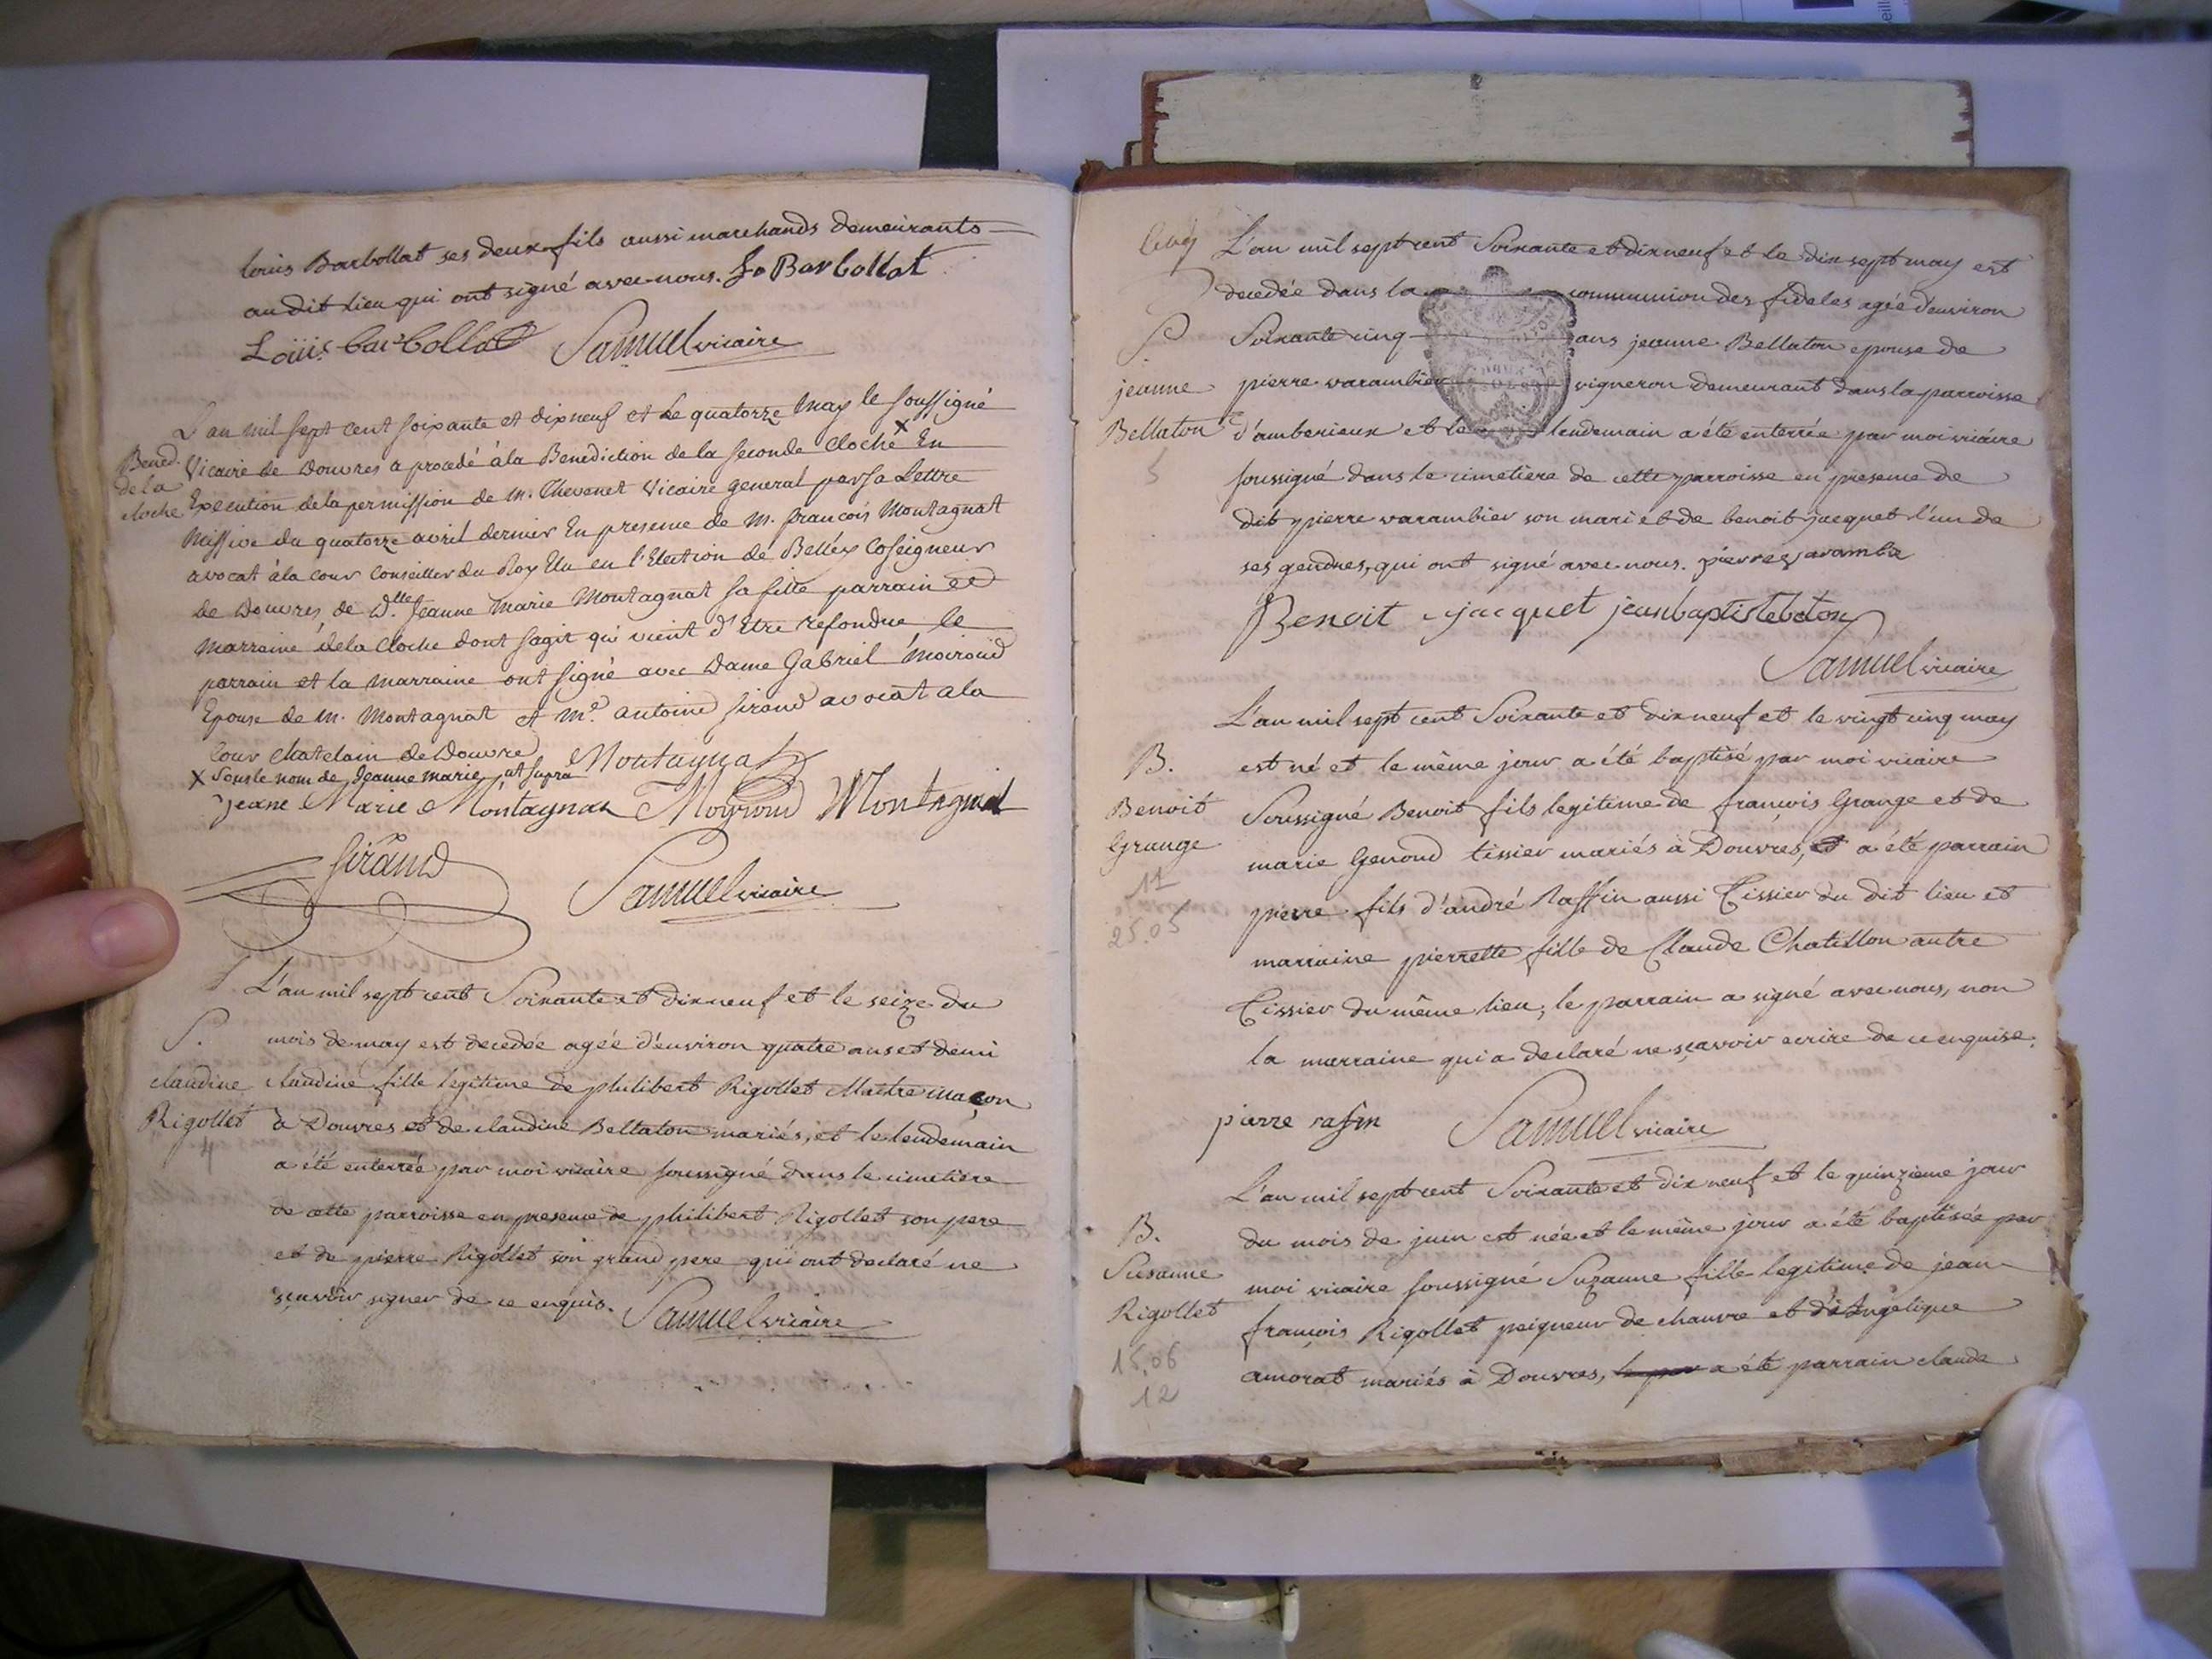 louis Barbollat ses deux fils aussi marchands demeurants
au dit lieu qui ont signé avec nous. Jo Barbollat
Loüis barbollat Samuel vicaire
L'an mil sept cent soixante et dixneuf et le quatorze may le soussigné
Bened. de la cloche
Vicaire de Douvres a procedé à la Benediction de la seconde cloche X En
Execution de la permission de M. Chevenet Vicaire general par sa Lettre
Missive du quatorze avril dernier En presence de M. françois Montagnat
avocat à la cour Conseiller du Roy Elu en l'Election de Belley Coseigneur
de Douvres, de D.lle Jeanne Marie Montagnat sa fille parrain et
Marraine de la Cloche dont sagit qui vient d'Etre refondue le
parrain et la Marraine ont signé avec Dame Gabriel Moiroud
Epouse de M. Montagnat et Me. antoine sirand avocat a la
Cour Chatelain de Douvre Montagnat
X sous le nom de Jeanne marie, ut supra
Jeane Marie Montagnat Moyroud Montagnat
Sirand Samuel vicaire
L'an mil sept cent Soixante et dixneuf et le seize du
S. claudine Rigollet
4
mois de may est decedée agée d'environ quatre ans et demi
claudine fille legitime de philibert Rigollet Maitre maçon
à Douvres et de claudine Bellaton mariés, et le lendemain
a été enterrée par moi vicaire soussigné dans le cimetière
de cette parroisse en presence de philibert Rigollet son pere
et de pierre Rigollet son grand pere qui ont declaré ne
sçavoir signer de ce enquis. Samuel vicaire
L'an mil sept cent Soixante et dixneuf et le dix sept may est
decedée dans la communion des fideles agée d'environ
S. jeanne Bellaton
5
Soixante cinq ans jeanne Bellaton epouse de
pierre varambier vigneron demeurant dans la parroisse
d'amberieux et le lendemain a été enterrée par moi vicaire
soussigné dans le cimetière de cette parroisse en presence de
dit pierre varambier son mari et de benoit jacquet l'un de
ses gendres, qui ont signé avec nous. pierre varambie
Benoit jacquet jean baptiste baton
Samuel vicaire
L'an mil sept cent Soixante et dixneuf et le vingt cinq may
B. Benoit Grange
11
25.05
est né et le même jour a été baptisé par moi vicaire
Soussigné Benoit fils legitime de françois Grange et de
marie Genoud tissier mariés à Douvres, et a été parrain
pierre fils d'andré Raffin aussi Tissier du dit lieu et
marraine pierrette fille de Claude Chatillon autre
Tissier du même lieu, le parrain a signé avec nous, non
la marraine qui a declaré ne sçavoir ecrire de ce enquise.
pierre rafin Samuel vicaire
L'an mil sept cent Soixante et dix neuf et le quinzieme jour
B. Susanne Rigollet
15.06
12
du mois de juin est née et le même jour a été baptisée par
moi vicaire soussigné Suzanne fille legitime de jean
françois Rigollet peigneur de chanvre et d'Angelique
amorat mariés à Douvres, a été parrain claude